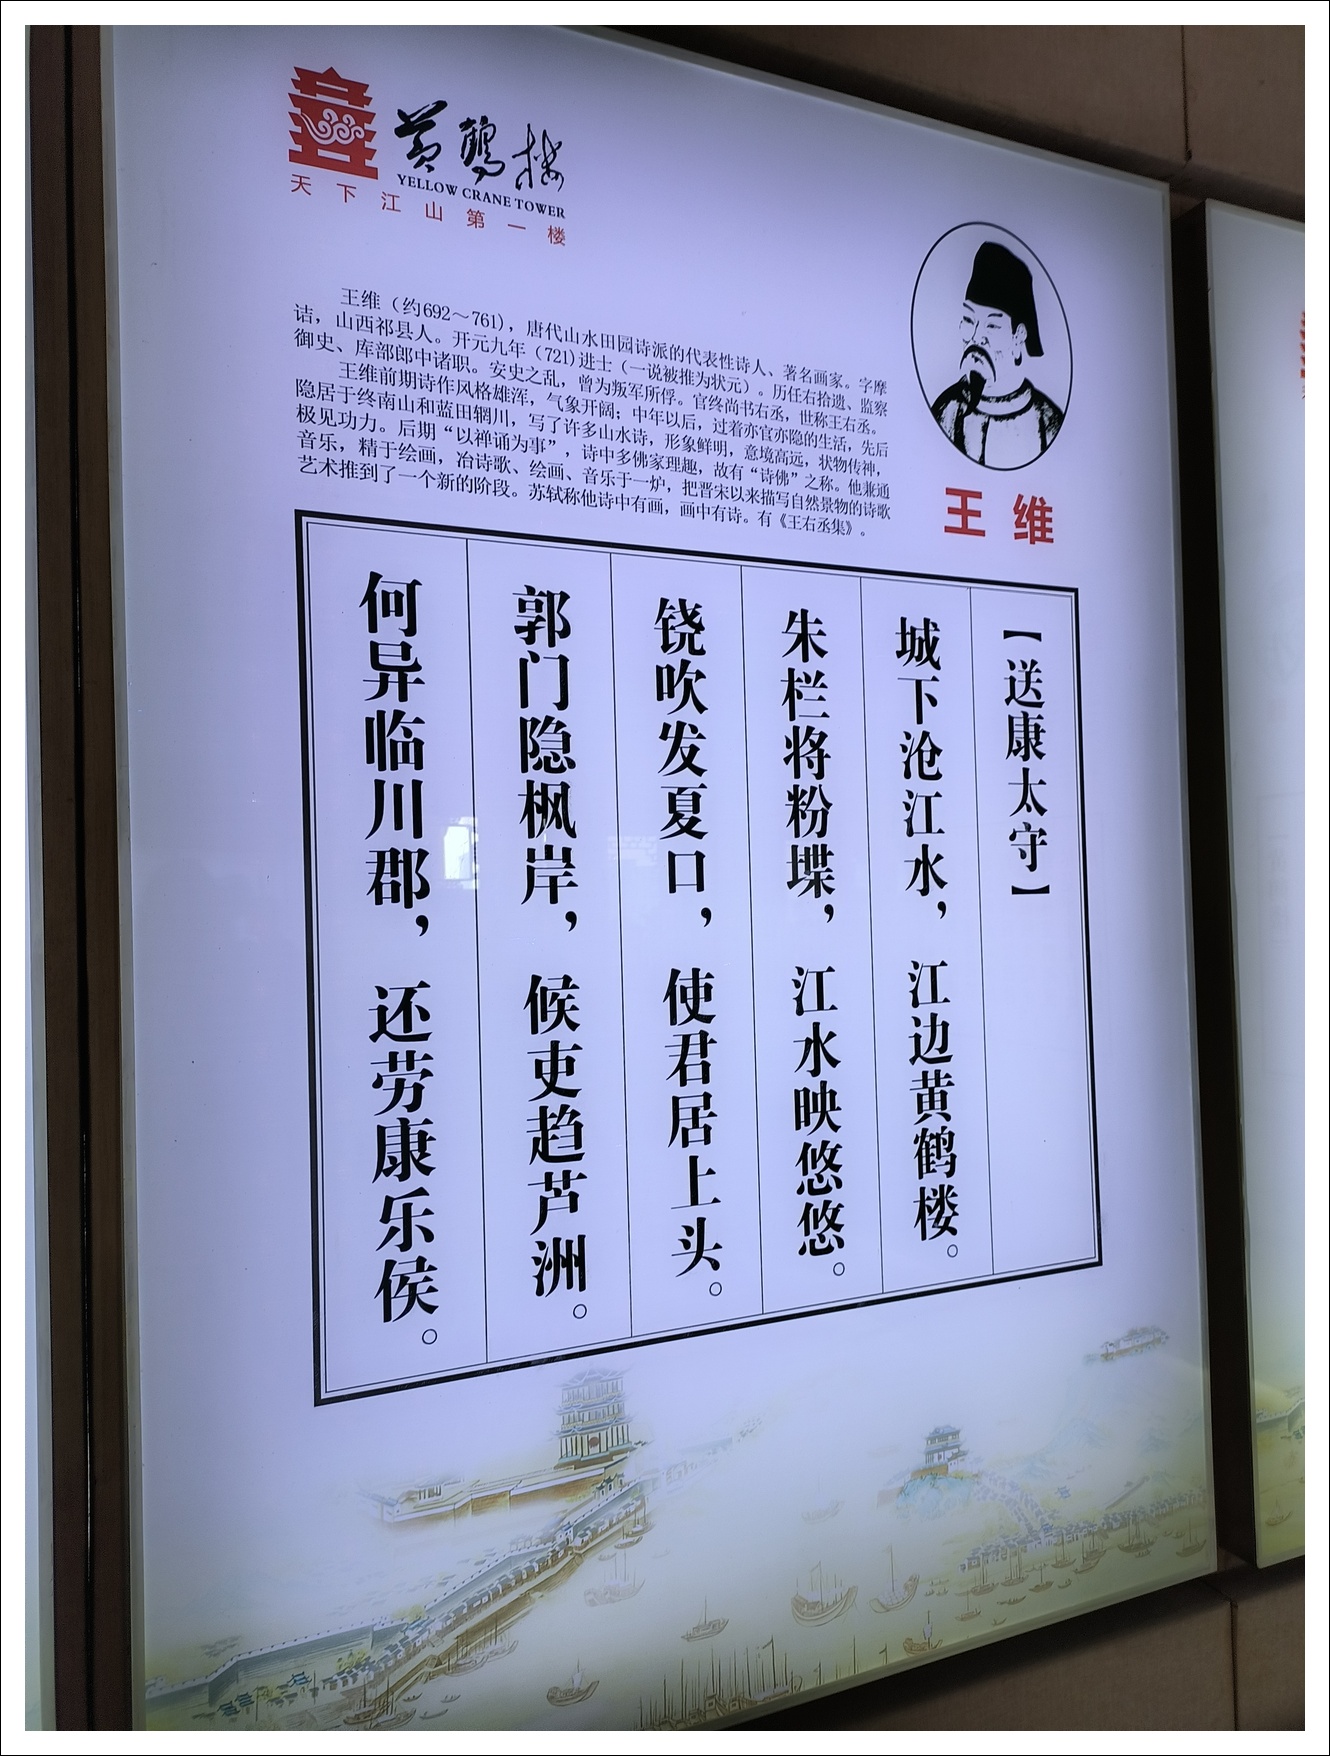 黄鹤楼
YELLOW CRANE TOWER
天下江山第一楼
王维（约692～761），唐代山水田园诗派的代表性诗人、著名画家。字摩
诘，山西祁县人。开元九年（721）进士（一说被推为状元）。历任右拾遗、监察
御史、库部郎中诸职。安史之乱，曾为叛军所俘。官终尚书右丞，世称王右丞。
王维前期诗作风格雄浑，气象开阔；中年以后，过着亦官亦隐的生活，先后
隐居于终南山和蓝田辋川，写了许多山水诗，形象鲜明，意境高远，状物传神，
极见功力。后期“以禅诵为事”，诗中多佛家理趣，故有“诗佛”之称。他兼通
音乐，精于绘画，冶诗歌、绘画、音乐于一炉，把晋宋以来描写自然景物的诗歌
艺术推到了一个新的阶段。苏轼称他诗中有画，画中有诗。有《王右丞集》。
王维
【送康太守】
城下沧江水，江边黄鹤楼。
朱栏将粉堞，江水映悠悠。
铙吹发夏口，使君居上头。
郭门隐枫岸，候吏趋芦洲。
何异临川郡，还劳康乐侯。